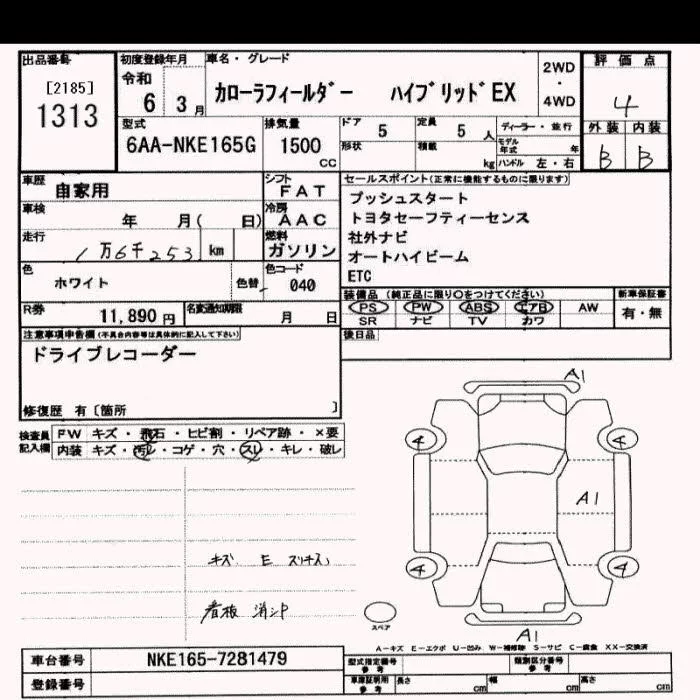 出品番号
[2185]
1313
初度登録年月
令和
6 3月
車名・グレード
カローラフィールダー ハイブリッドEX
2WD
・
4WD
評価点
4
外装 内装
B B
型式
6AA-NKE165G
排気量
1500
cc
ドア 5
定員 5 人
ディーラー・並行
モデル年式 年
形状
積載 kg
ハンドル 左・右
車歴
自家用
シフト
FAT
車検
年 月( 日)
冷房
AAC
走行
1万6千253 km
燃料
ガソリン
色
ホワイト
色替
色コード
040
R券
11,890円
名変通知期限
月 日
セールスポイント(正常に機能するものに限ります)
プッシュスタート
トヨタセーフティーセンス
社外ナビ
オートハイビーム
ETC
装備品 (純正品に限り○をつけてください)
PS PW ABS エアB AW
SR ナビ TV カワ
新車保証書
有・無
後日品
注意事項申告欄(不具合内容等は具体的に記入して下さい)
ドライブレコーダー
修復歴 有〔箇所 〕
検査員
記入欄
FW キズ・飛石・ヒビ割・リペア跡・×要
内装 キズ・汚レ・コゲ・穴・スレ・キレ・破レ
キズ E スリキズ
看板 消シP
A1
4 4
A1
4 4
A1
スペア
A-キズ E-エクボ U-凹み W-補修跡 S-サビ C-腐食 XX-交換済
車台番号
NKE165-7281479
登録番号
型式指定番号
参考
類別区分番号
参考
車庫証明用
参考
長さ cm
幅 cm
高さ cm